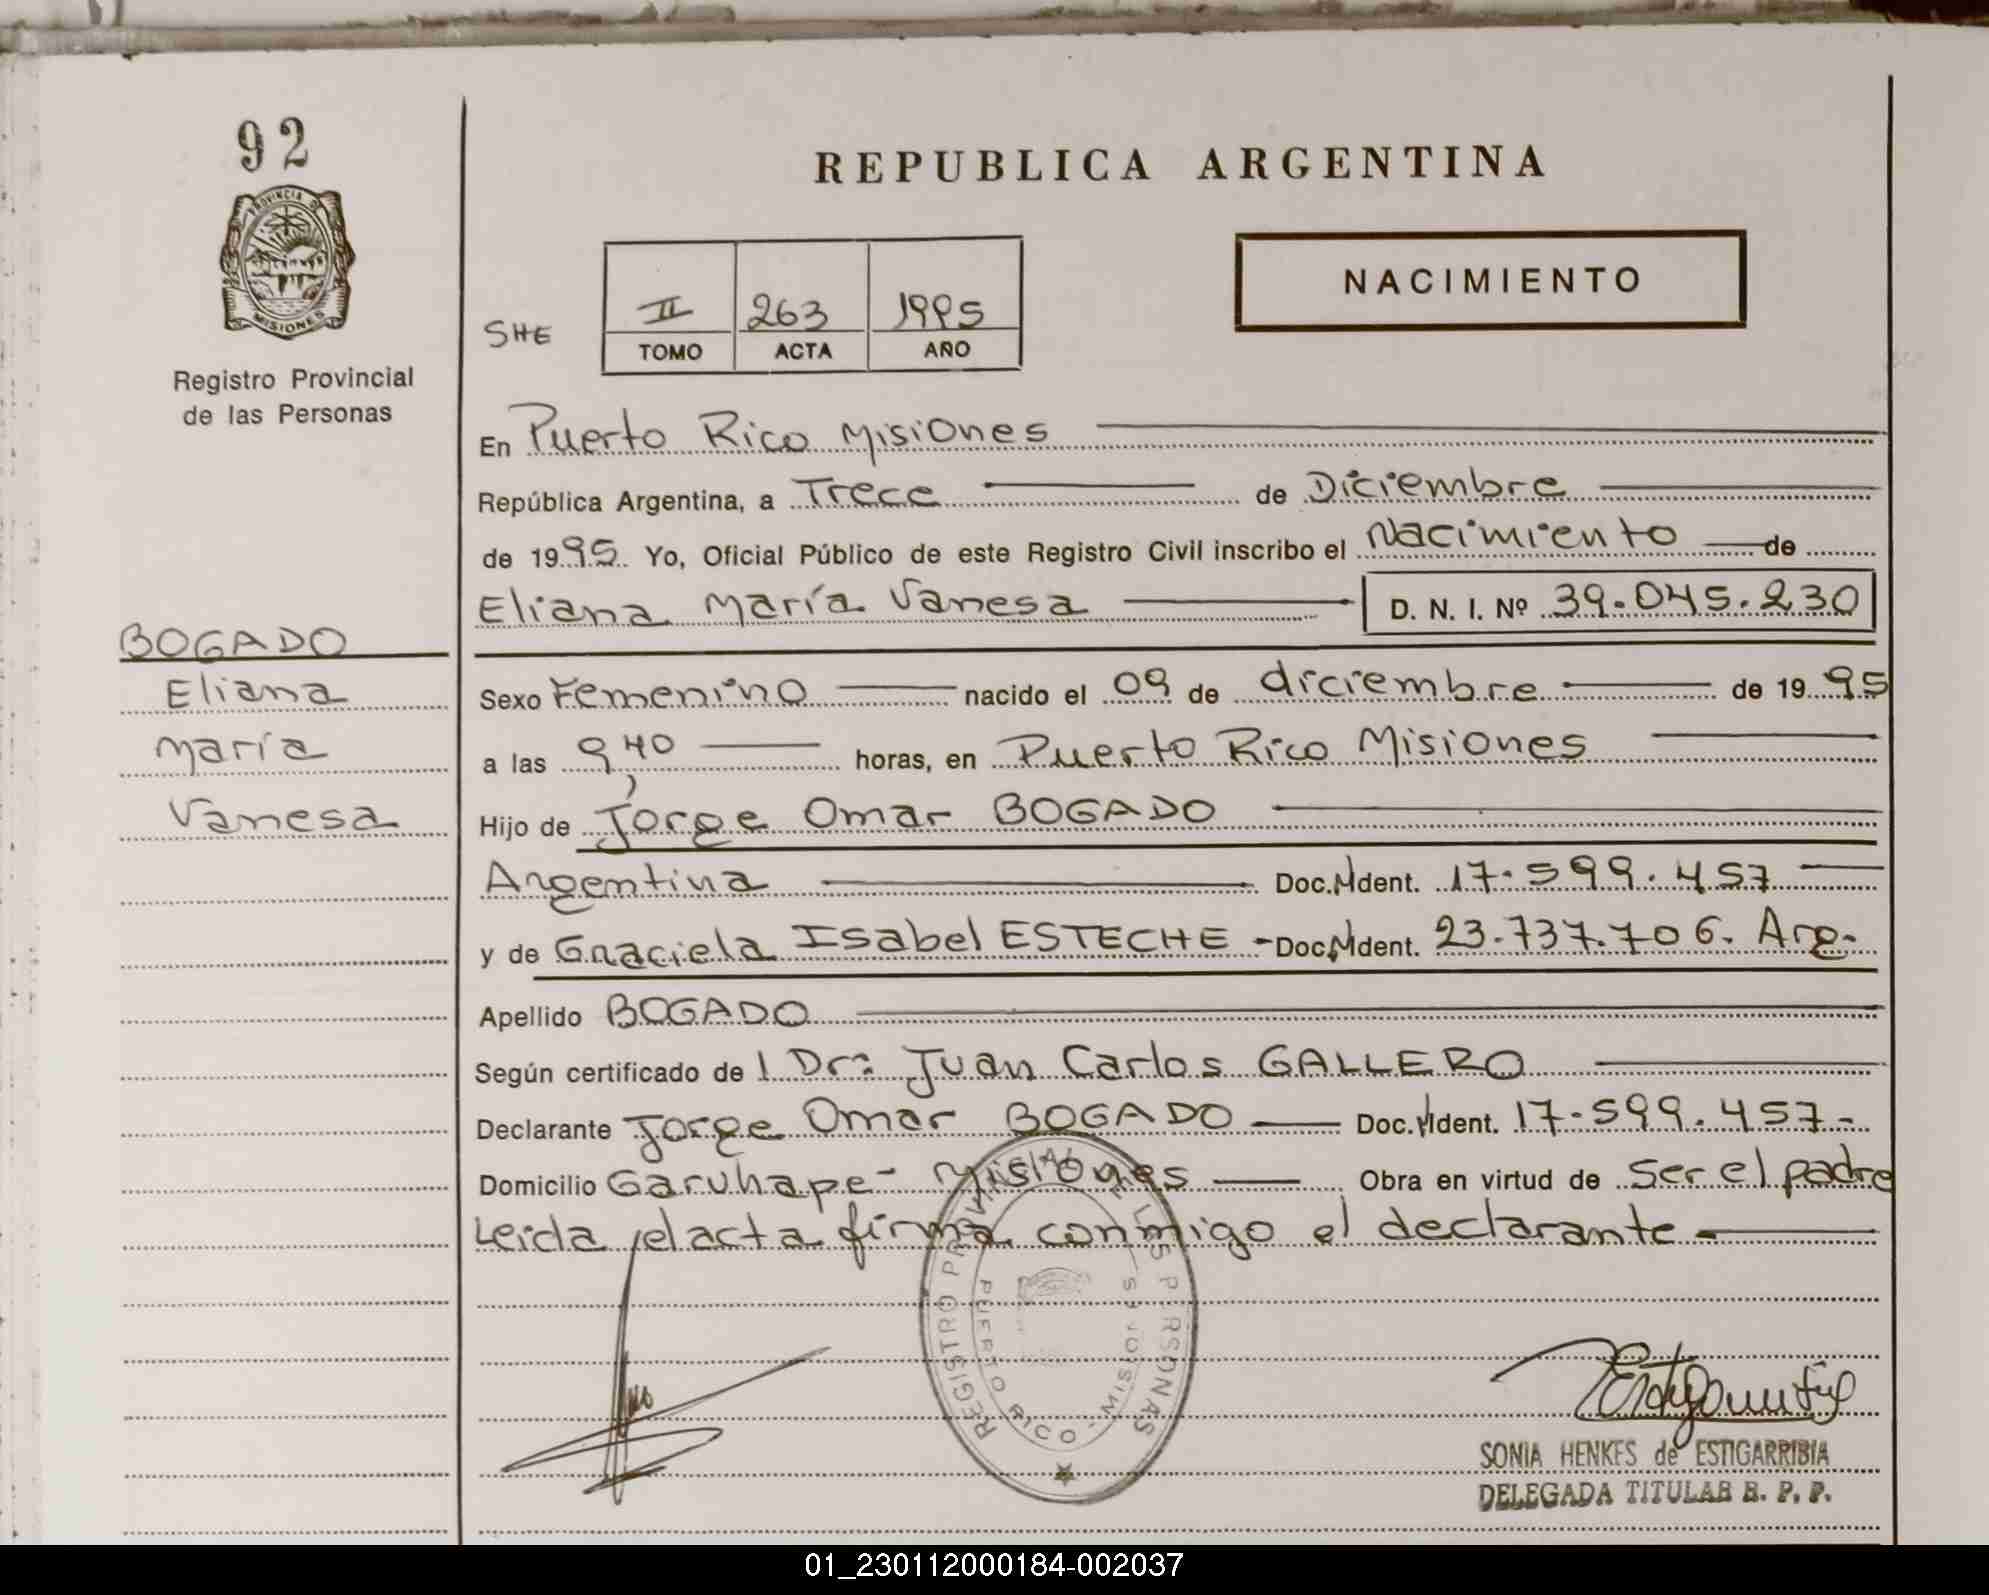 92
PROVINCIA DE
MISIONES
Registro Provincial
de las Personas
REPUBLICA ARGENTINA
NACIMIENTO
SHE
II 263 1995
TOMO ACTA AÑO
En Puerto Rico Misiones
República Argentina, a Trece de Diciembre
de 1995 Yo, Oficial Público de este Registro Civil inscribo el Nacimiento de
Eliana María Vanesa D. N. I. Nº 39.045.230
BOGADO
Eliana
María
Vanesa
Sexo Femenino nacido el 09 de diciembre de 1995
a las 9,40 horas, en Puerto Rico Misiones
Hijo de Jorge Omar BOGADO
Argentina Doc. Ident. 17.599.457
y de Graciela Isabel ESTECHE - Doc. Ident. 23.737.706. Arg.
Apellido BOGADO
Según certificado de l Dr: Juan Carlos GALLERO
Declarante Jorge Omar BOGADO Doc. Ident. 17.599.457-
Domicilio Garuhape - Misiones Obra en virtud de Ser el padre
Leida el acta firma conmigo el declarante
REGISTRO PROVINCIAL DE LAS PERSONAS
PUERTO RICO - MISIONES
SONIA HENKES de ESTIGARRIBIA
DELEGADA TITULAR R. P. P.
01_230112000184-002037